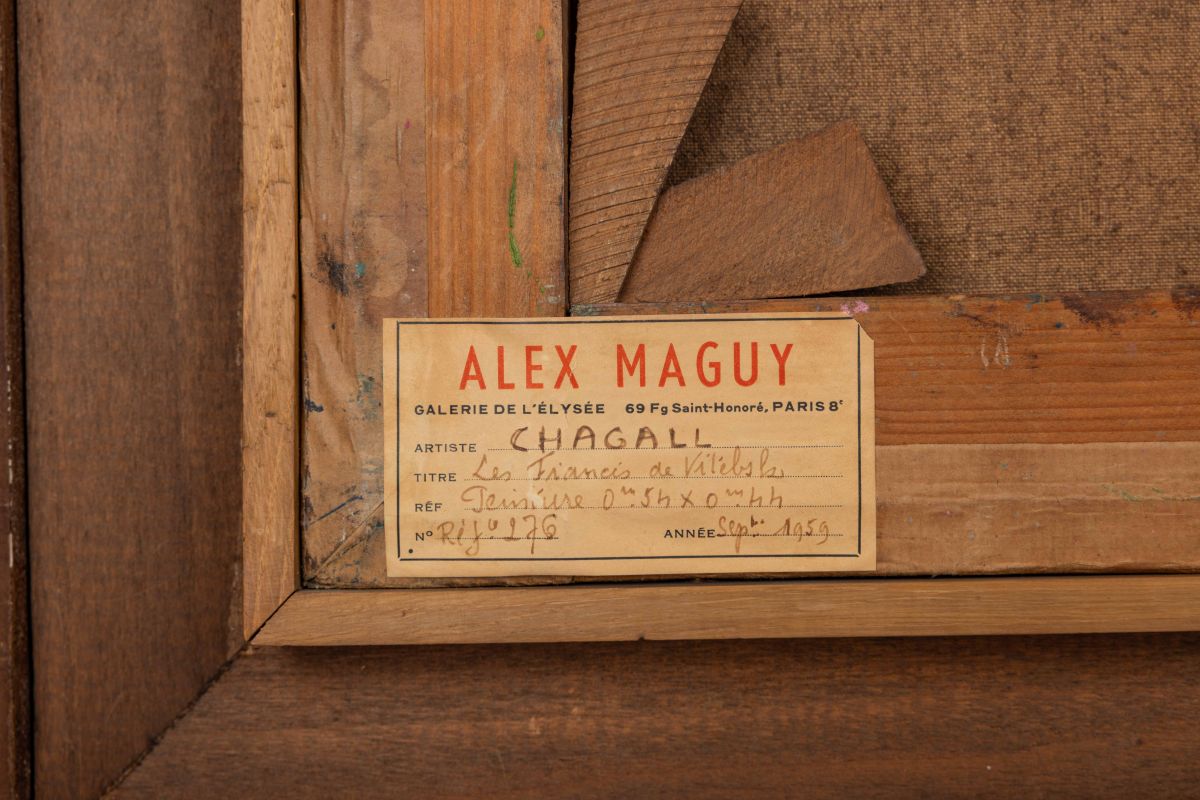 ALEX MAGUY
GALERIE DE L'ÉLYSÉE 69 Fg Saint-Honoré, PARIS 8e
ARTISTE CHAGALL
TITRE Les Fiancés de Vitebsk
RÉF Peinture 0m.54 x 0m.44
No Réf. 276 ANNÉE Septbe 1959